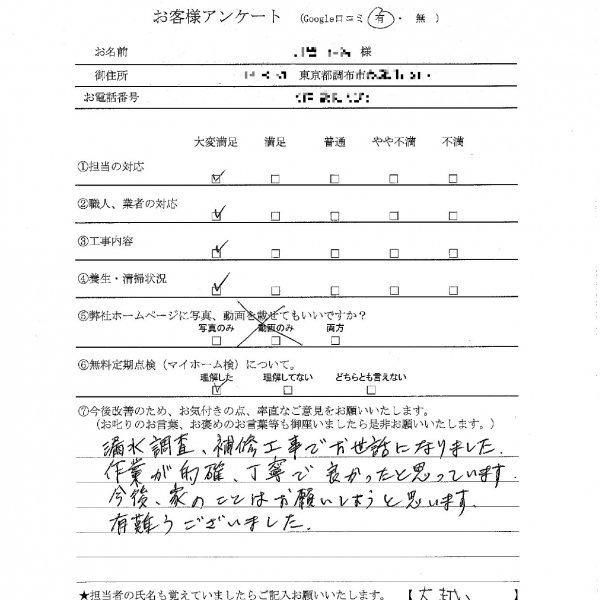 お客様アンケート (Google口コミ 有・ 無 )
お名前 様
御住所 東京都調布市
お電話番号
大変満足 満足 普通 やや不満 不満
①担当の対応
②職人、業者の対応
③工事内容
④養生・清掃状況
⑤弊社ホームページに写真、動画を載せてもいいですか？
写真のみ 動画のみ 両方
⑥無料定期点検（マイホーム検）について。
理解した 理解してない どちらとも言えない
⑦今後改善のため、お気付きの点、率直なご意見をお願いいたします。
（お叱りのお言葉、お褒めのお言葉等も御座いましたら是非お願いいたします。）
漏水調査、補修工事でお世話になりました.
作業が的確、丁寧で良かったと思っています.
今後、家のことはお願いしようと思います.
有難うございました.
★担当者の氏名も覚えていましたらご記入お願いいたします。 【 】